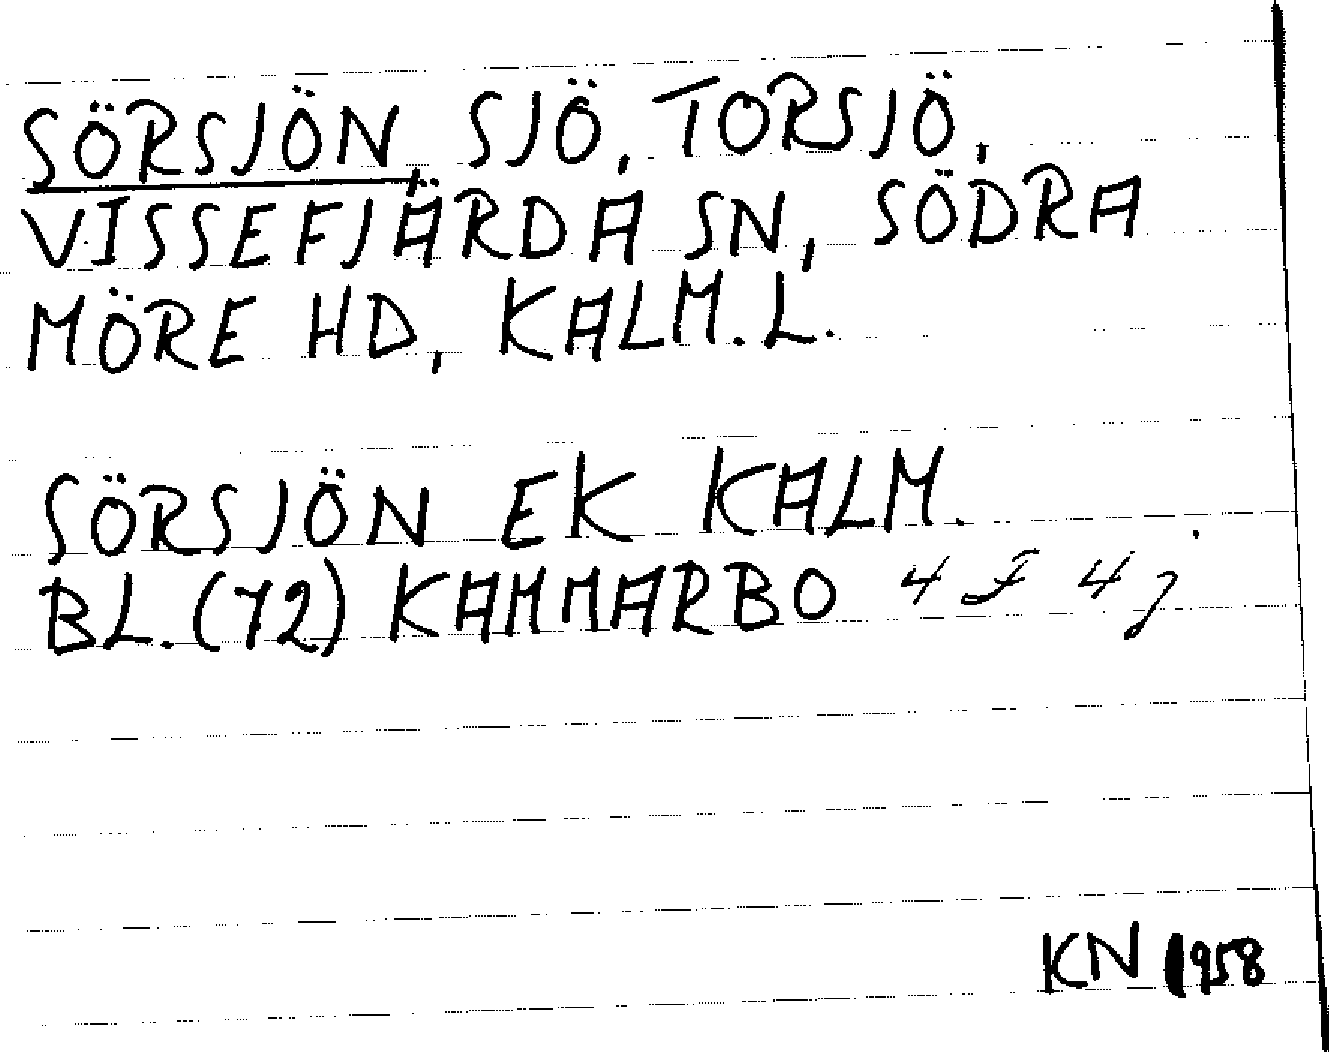 SÖRSJÖN, SJÖ, TORSJÖ,
VISSEFJÄRDA SN, SÖDRA
MÖRE HD, KALM. L.
SÖRSJÖN EK KALM.
BL. (72) KAMMARBO 4 F 4 j
KN 1958